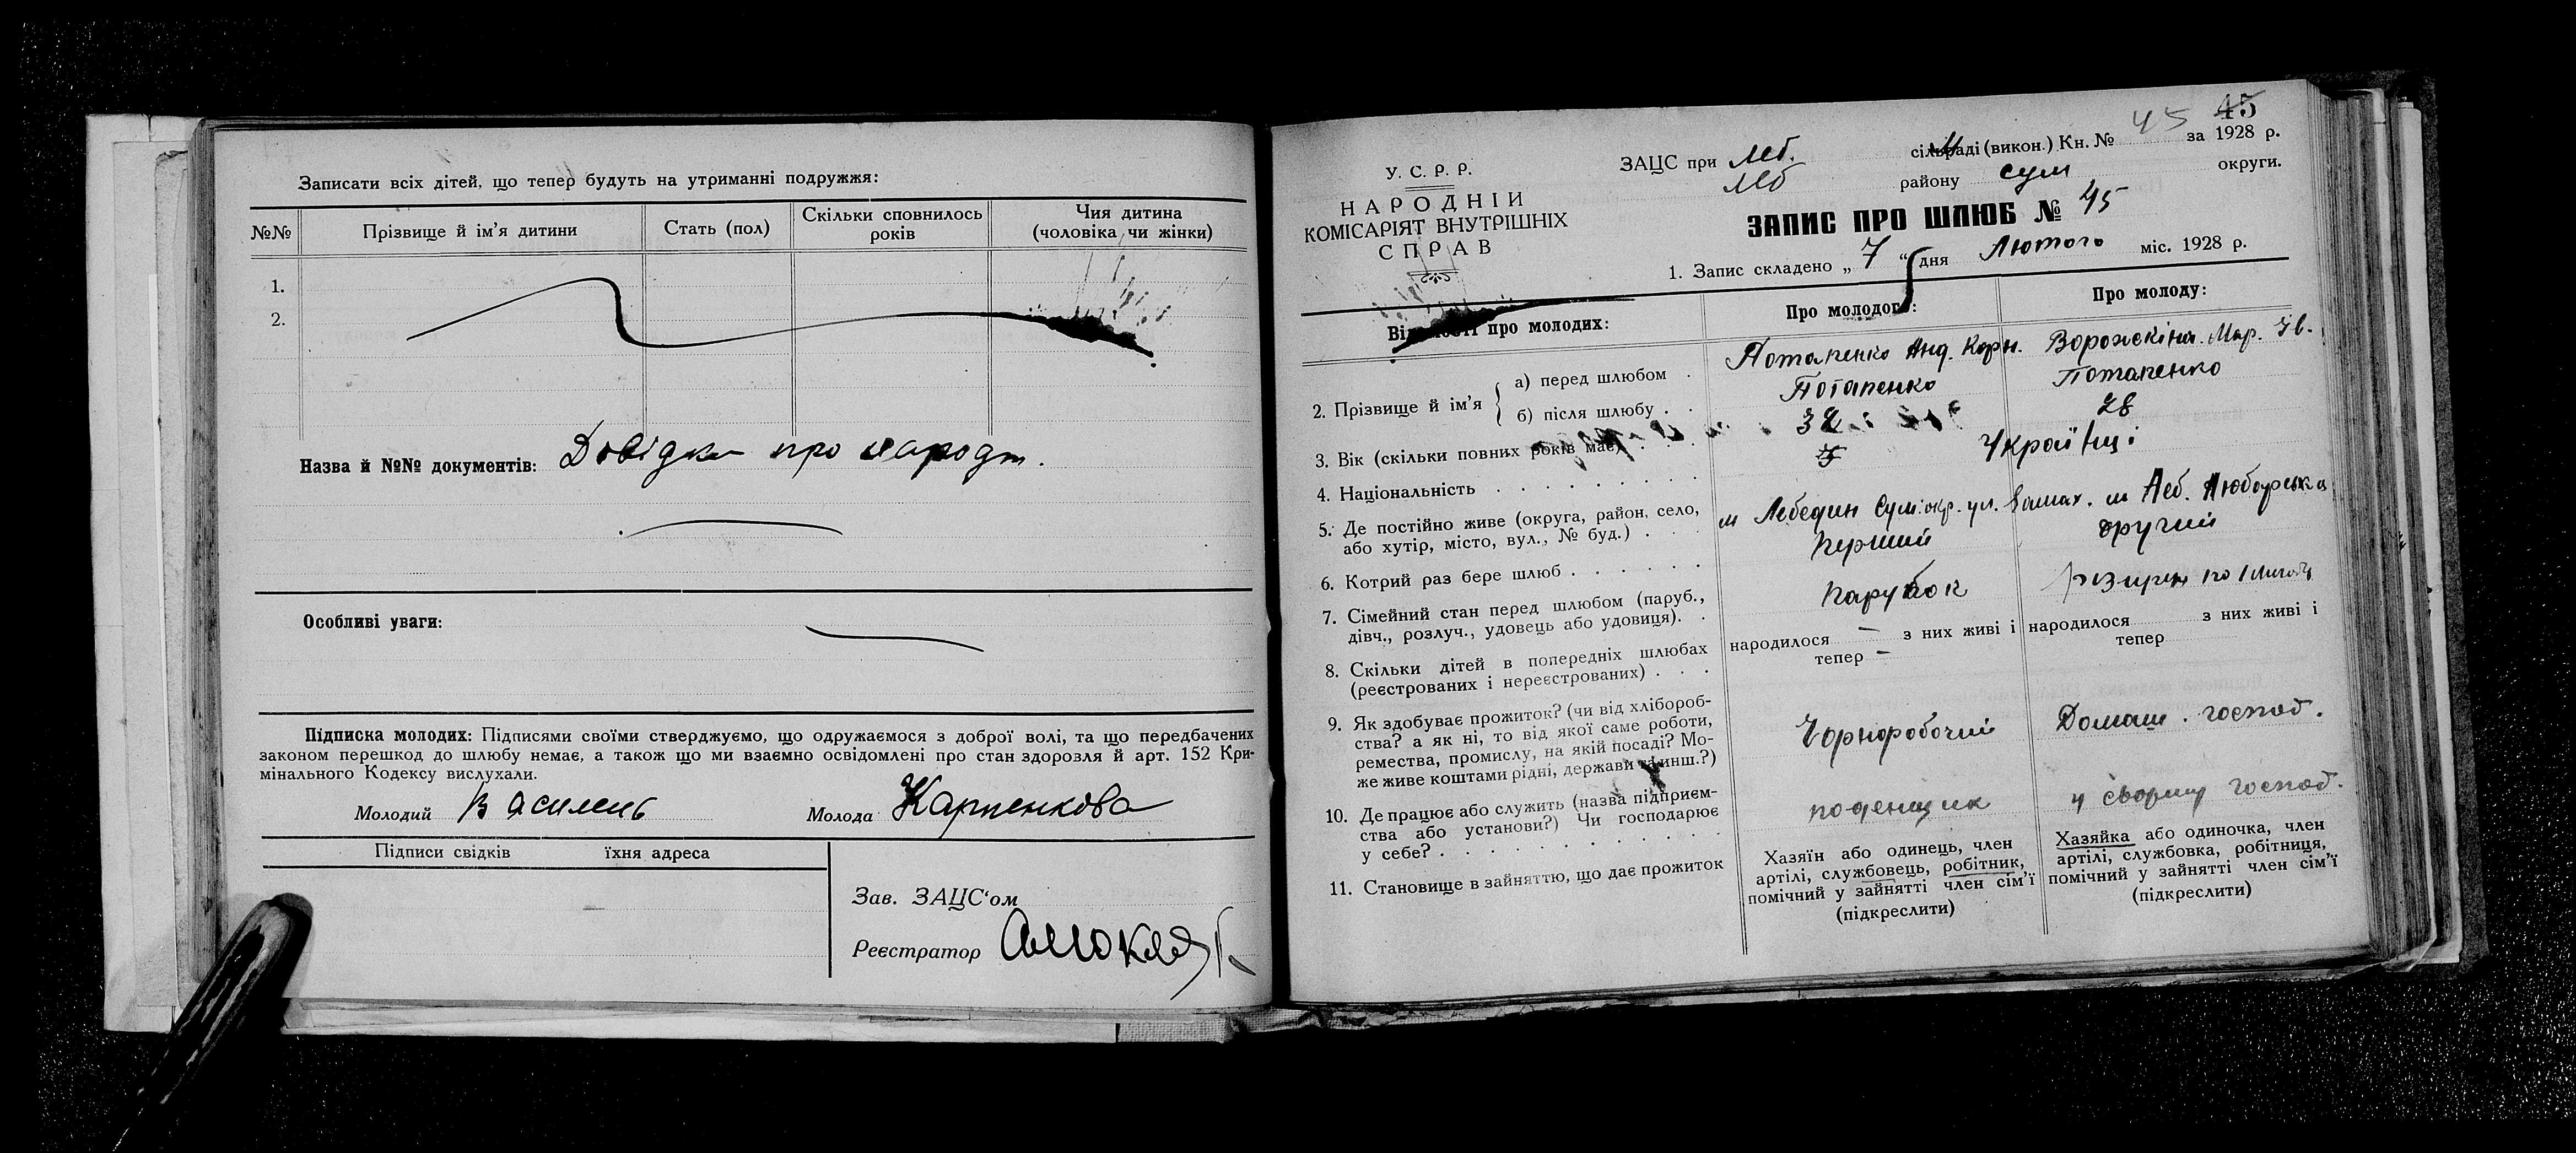 Записати всіх дітей, що тепер будуть на утриманні подружжя:
№№ Прізвище й ім'я дитини Стать (пол) Скільки сповнилось років Чия дитина (чоловіка чи жінки)
1.
2.
Назва й №№ документів: Довідка про народж.
Особливі уваги:
Підписка молодих: Підписями своїми стверджуємо, що одружаємося з доброї волі, та що передбачених
законом перешкод до шлюбу немає, а також що ми взаємно освідомлені про стан здоровля й арт. 152 Кри-
мінального Кодексу вислухали.
Молодий Василець Молода Карпенкова
Підписи свідків їхня адреса
Зав. ЗАЦС'ом
Реєстратор
45
У. С. Р. Р.
НАРОДНІЙ
КОМІСАРІЯТ ВНУТРІШНІХ
СПРАВ
ЗАЦС при Леб. сільраді (викон.) Кн. № 45 за 1928 р.
Леб району Сум округи.
ЗАПИС ПРО ШЛЮБ № 45
1. Запис складено „ 7 “ дня Лютого міс. 1928 р.
Відомості про молодих: Про молодого: Про молоду:
2. Прізвище й ім'я
а) перед шлюбом . Потапенко Анд. Корн. Ворожкіна Мар. Ів.
б) після шлюбу . . Потапенко Потапенко
3. Вік (скільки повних років має) . . . 32 28
4. Національність . . . . . . . . . Українці
5. Де постійно живе (округа, район, село,
або хутір, місто, вул., № буд.) . . .
м Лебедин Сум. окр. ул. м Леб. Любарська
6. Котрий раз бере шлюб . . . . . . Перший другий
7. Сімейний стан перед шлюбом (паруб.,
дівч., розлуч., удовець або удовиця). .
Парубок
8. Скільки дітей в попередніх шлюбах
(реєстрованих і нереєстрованих) . . .
народилося — з них живі і
тепер —
народилося з них живі і
тепер
9. Як здобуває прожиток? (чи від хлібороб-
ства? а як ні, то від якої саме роботи,
ремества, промислу, на якій посаді? Мо-
же живе коштами рідні, держави та инш.?)
Чорноробочий
Домаш. господ.
10. Де працює або служить (назва підприєм-
ства або установи?) Чи господарює
у себе? . . . . . . . . . .
поденщик
у своєму господ.
11. Становище в зайняттю, що дає прожиток
Хазяїн або одинець, член
артілі, службовець, робітник,
помічний у зайнятті член сім'ї
(підкреслити)
Хазяйка або одиночка, член
артілі, службовка, робітниця,
помічний у зайнятті член сім'ї
(підкреслити)